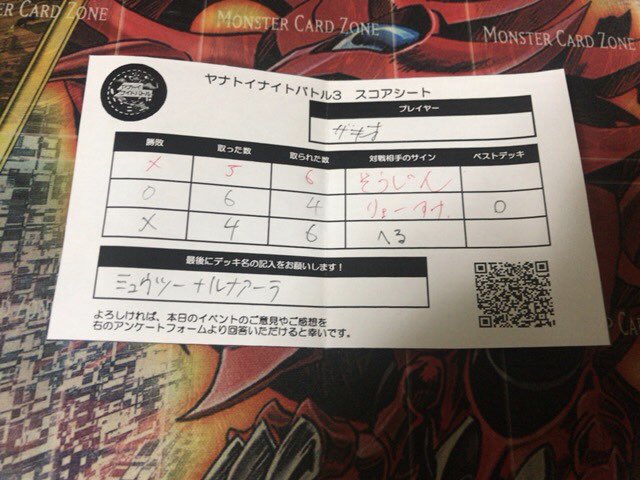 MONSTER CARD ZONE
MONSTER CARD ZONE
ヤナトイナイトバトル3 スコアシート
プレイヤー
ガキオ
勝敗 取った数 取られた数 対戦相手のサイン ベストデッキ
× 5 6 そうじん
○ 6 4 りょーすけ ○
× 4 6 へる
最後にデッキ名の記入をお願いします!
ミュウツー ナルナアーラ
よろしければ、本日のイベントのご意見やご感想を
右のアンケートフォームより回答いただけると幸いです。